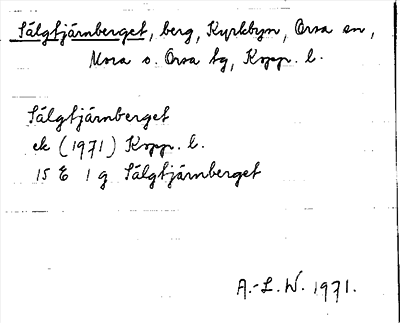 Sälgtjärnberget, berg, Kyrkbyn, Orsa sn,
Mora o. Orsa tg, Kopp. l.
Sälgtjärnberget
ek (1971) Kopp. l.
15 E 1 g Sälgtjärnberget
A.-L.W. 1971.